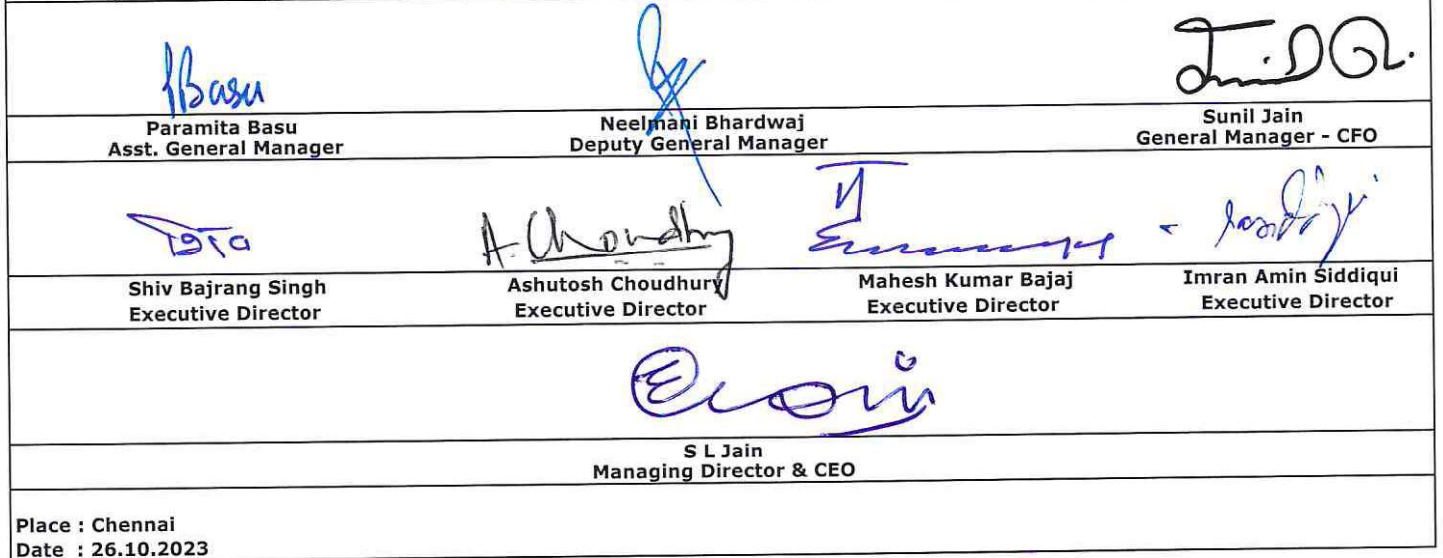 Basu
Paramita Basu
Asst. General Manager
Neelmani Bhardwaj
Deputy General Manager
Sunil Jain
General Manager - CFO
A. Choudhury
Shiv Bajrang Singh
Executive Director
Ashutosh Choudhury
Executive Director
Mahesh Kumar Bajaj
Executive Director
Imran Amin Siddiqui
Executive Director
S L Jain
Managing Director & CEO
Place : Chennai
Date : 26.10.2023